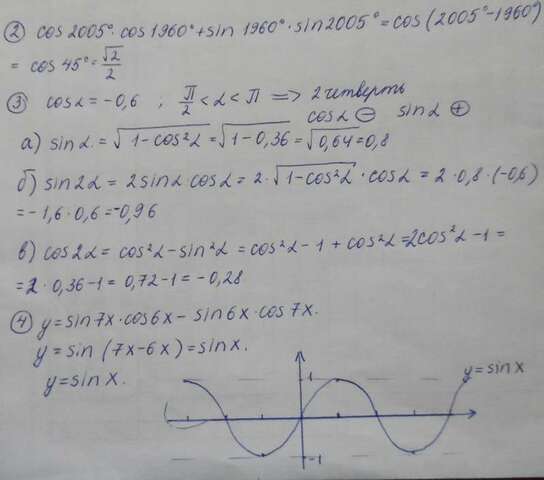 ② cos2005°·cos1960°+sin1960°·sin2005°=cos(2005°-1960°)
= cos45°=√2/2
③ cosα=-0,6 ; П/2<α<П => 2 четверть
cosα ⊖ sinα ⊕
а) sinα=√(1-cos²α)=√(1-0,36)=√0,64=0,8
б) sin2α=2sinα cosα=2·√(1-cos²α)·cosα=2·0,8·(-0,6)
=-1,6·0,6=-0,96
в) cos2α=cos²α-sin²α=cos²α-1+cos²α=2cos²α-1=
=2·0,36-1=0,72-1=-0,28
④ y=sin7x·cos6x-sin6x·cos7x.
y=sin(7x-6x)=sinx.
y=sinx.
y=sinx
1
-1